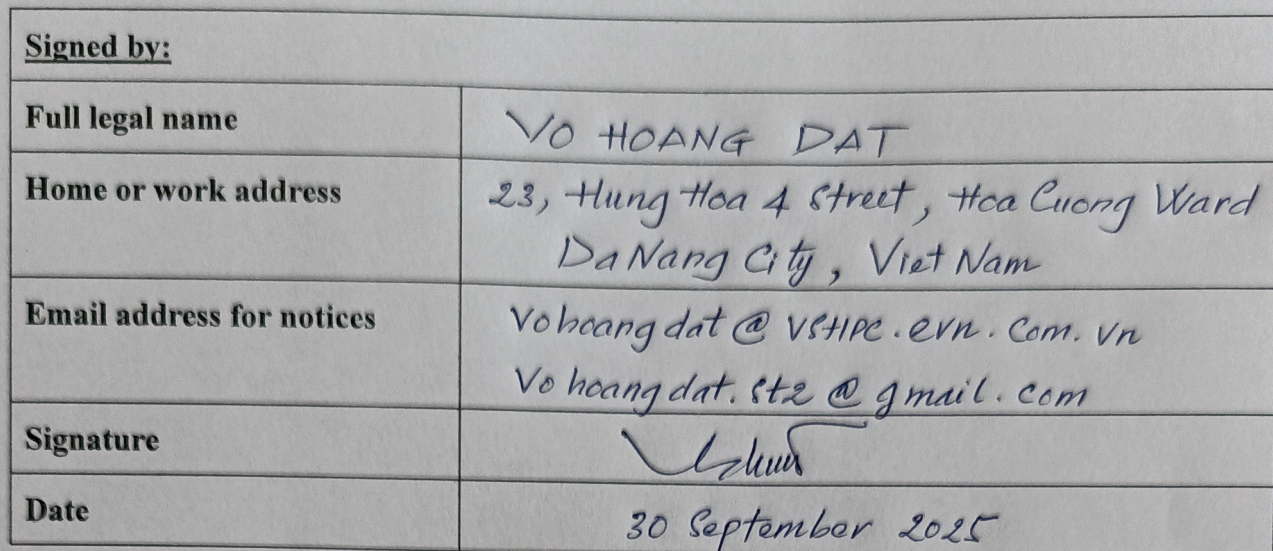 Signed by:
Full legal name
VO HOANG DAT
Home or work address
23, Hung Hoa 4 Street, Hoa Cuong Ward
Da Nang City, Viet Nam
Email address for notices
Vohoangdat@VSHPC.evn.com.vn
Vohoangdat.st2@gmail.com
Signature
Date
30 September 2025